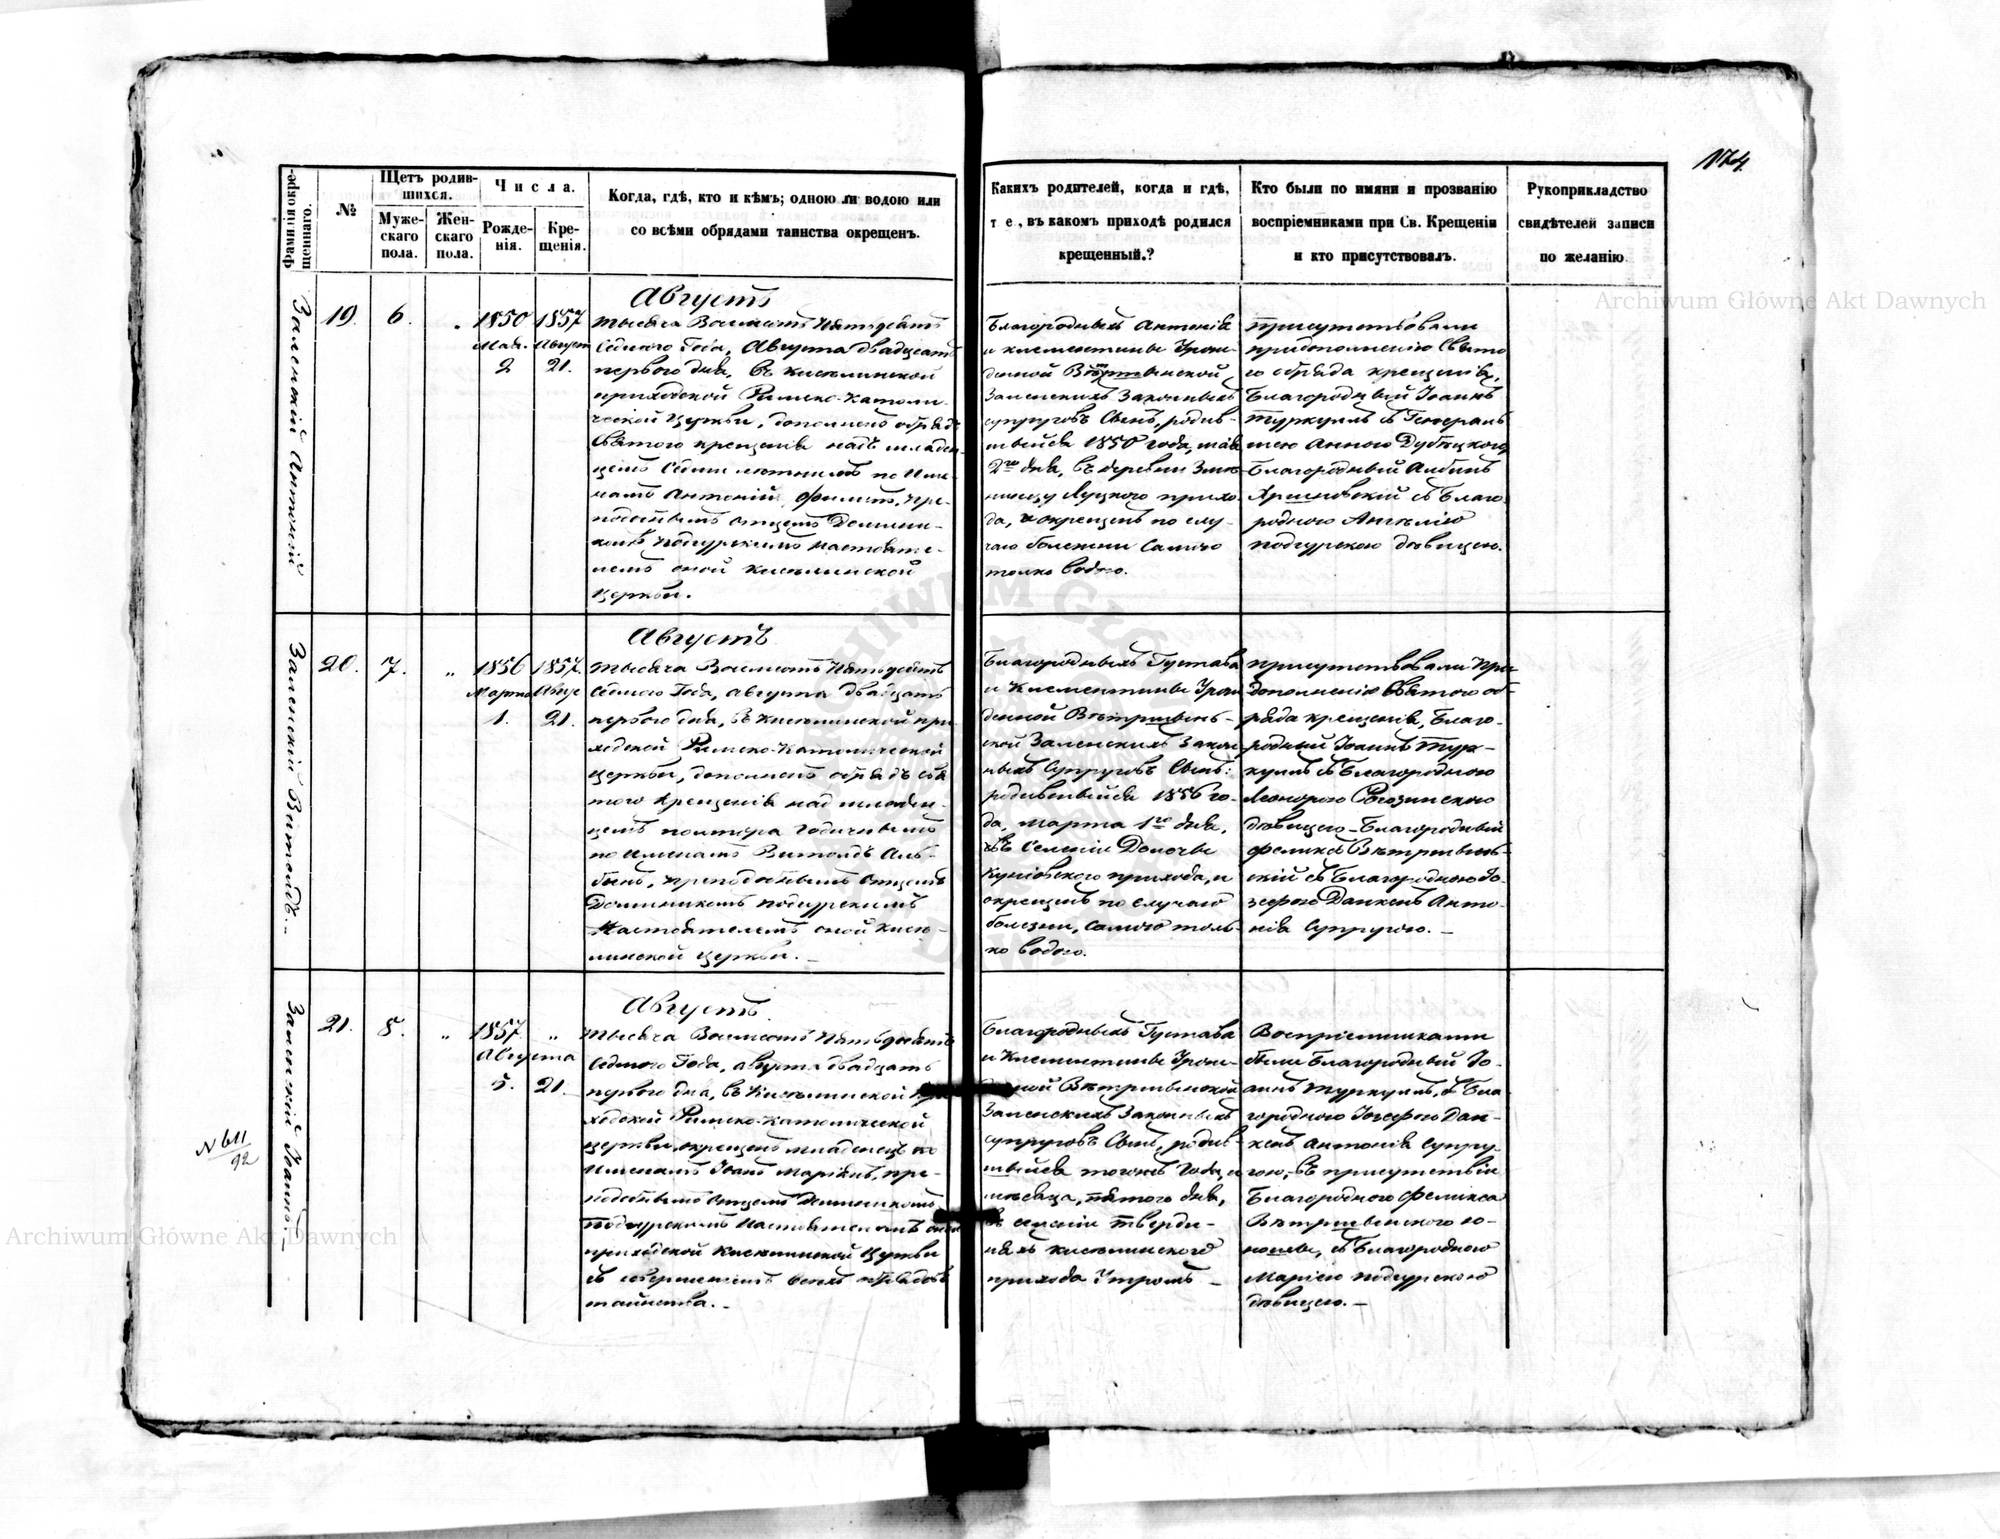 174
Archiwum Główne Akt Dawnych
Фамилія окре-
щеннаго.
№
Щетъ родив-
шихся.
Муже-
скаго
пола.
Жен-
скаго
пола.
Числа.
Рожде-
нія.
Кре-
щенія.
Когда, гдѣ, кто и кѣмъ; одною ли водою или
со всѣми обрядами таинства окрещенъ.
Какихъ родителей, когда и гдѣ,
т е, въ какомъ приходѣ родился
крещенный.?
Кто были по имяни и прозванію
воспріемниками при Св. Крещеніи
и кто присутствовалъ.
Рукоприкладство
свидѣтелей записи
по желанію.
Заленскій Антоній
19.
6.
1850
Мая.
2
1857
Август
21.
Августъ
Тысяча Восемсотъ Пятьдесятъ
Седмого Года, Августа двадцать
первого дня, въ Кисѣлинской
приходской Римско-Католи-
ческой Церкви, дополненъ обрядъ
Святого крещенія надъ младен-
цемъ Седми лѣтнимъ по Име-
намъ Антоній, пре-
подобнымъ отцемъ Домини-
комъ Подгурскимъ Настояте-
лемъ оной Кисѣлинской
Церкви.
Благородныхъ Антонія
и Клементины Урож-
денной
Заленскихъ Законныхъ
супруговъ Сынъ, родив-
шыйся 1850 года, мая
2го дня, въ деревни
Луцкого прихо-
да, и окрещенъ по слу-
чаю болезни Самою
только водою.
Присутствовали
при дополненію Свято-
го обряда крещенія,
Благородный Іоаннъ
Туркулъ съ Генераль-
шею Анною Дубецкою,
Благородный Албинъ
съ Благо-
родною Анѣлею
Подгурскою дѣвицею.
Заленскій Витольдъ.
20.
7.
„
1856
Марта
1.
1857.
Авгус
21.
Августъ
Тысяча Восемсотъ Пятьдесятъ
Седмого Года, Августа двадцать
первого дня, въ Кисѣлинской при-
ходской Римско-Католической
Церкви, дополненъ обрядъ Свя-
того Крещенія над младен-
цемъ полтора годичнымъ
по Именамъ Витольдъ Аль-
бинъ, преподобнымъ Отцемъ
Доминикомъ Подгурскимъ
Настоятелемъ оной Кисѣ-
линской Церкви. —
Благородныхъ Густава
и Клементины Урож-
денной Вѣтрешынь-
ской Заленскихъ Закон-
ныхъ Супруговъ Сынъ:
родившыйся 1856 го-
да, марта 1го дня,
въ Селеніи
прихода, и
окрещенъ по случаю
болезни, самою толь-
ко водою.
Присутствовали при
дополненію Святого об-
ряда крещенія, Благо-
родный Іоаннъ Тур-
кулъ съ Благородною
дѣвицею — Благородный
Феликсъ Вѣтрешынь-
скій съ Благородною Іо-
зефою Данкенъ Анто-
нія Супругою. —
Заленскій Іоаннъ. —
21.
8.
„
1857. „
Августа
5. 21.
№ 611/92
Августъ.
Тысяча Восемсотъ Пятьдесятъ
Седмого Года, августа двадцать
первого дня, въ Кисѣлинской при-
ходской Римско-Католической
Церкви окрещенъ младенецъ по
Именамъ Іоаннъ Маріянъ, пре-
подобнымъ Отцемъ Доминикомъ
Подгурскимъ Настоятелемъ оной
приходской Кисѣлинской Церкви
съ совершеніемъ всѣхъ обрядовъ
таинства. —
Благородныхъ Густава
и Клементины Урож-
денной Вѣтрешынской
Заленскихъ Законныхъ
супруговъ Сынъ, родив-
шыйся тогожъ Года и
мѣсяца, пятого дня,
въ селеніи Тверды-
няхъ Кисѣлинского
прихода Утромъ —
Воспріемниками
были Благородный Іо-
аннъ Туркулъ, съ Бла-
городною Іозефою Дан-
кенъ Антонія Супру-
гою, въ присутствіи
Благородного Феликса
Вѣтрешынского ю-
ноши, съ Благородною
Маріею Подгурскою
дѣвицею. —
Archiwum Główne Akt Dawnych